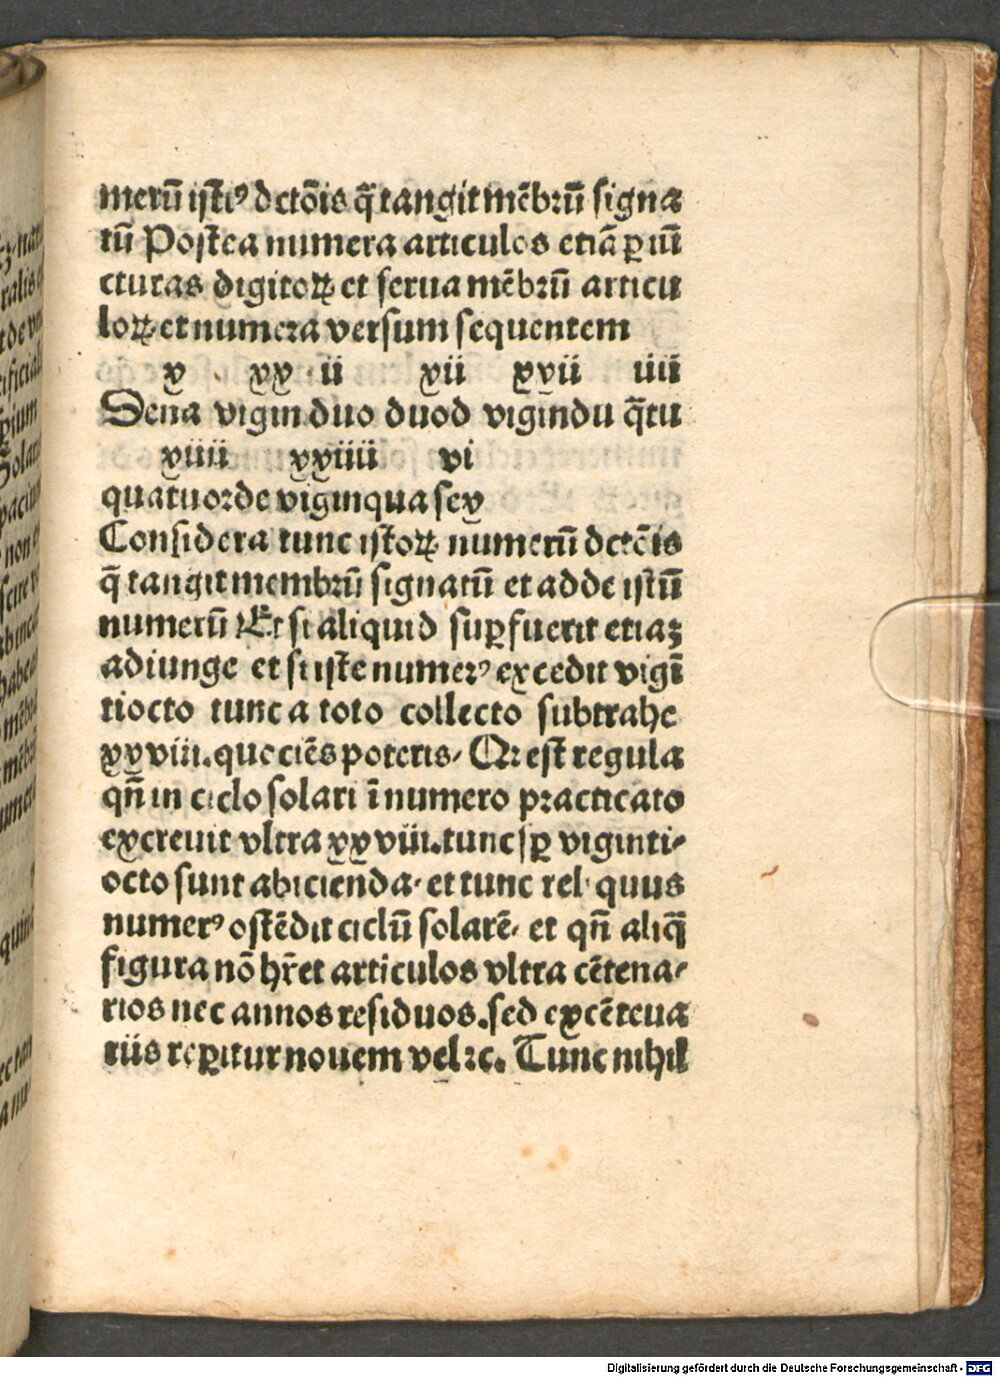 merū istiꝰ dctōis q̄ tangit mēbꝛū signa
tū Postea numera articulos etiā ꝑ iūi
cturas digitoꝝ et serua mēbꝛū articu
loꝝ et numera versum sequentem
x xx ii xii xxii iiii
Dena vigin duo duod vigindu q̄tu
xiiii xxiiii vi
quatuoꝛde viginqua sex
Considera tunc istoꝝ numerū dctōis
q̄ tangit membꝛū signatū et adde istū
numerū Et si aliquid suꝑfuerit etiaꝫ
adiunge et si iste numerꝰ excedit vigī
tiocto tunc a toto collecto subtrahe
xxviii. quociēs poteris/ Qꝛ est regula
qn̄ in ciclo solari ī numero pꝛacticato
excreuit vltra xxviii. tunc sꝑ viginti⸗
octo sunt abicienda· et tunc reliquus
numerꝰ ostēdit ciclū solarē· et qn̄ aliq̄
figura nō hr̄et articulos vltra cētena⸗
rios nec annos residuos. sed ex cētena
riis reꝑitur nouem vel ꝛc. Tunc nihil
Digitalisierung gefördert durch die Deutsche Forschungsgemeinschaft - DFG